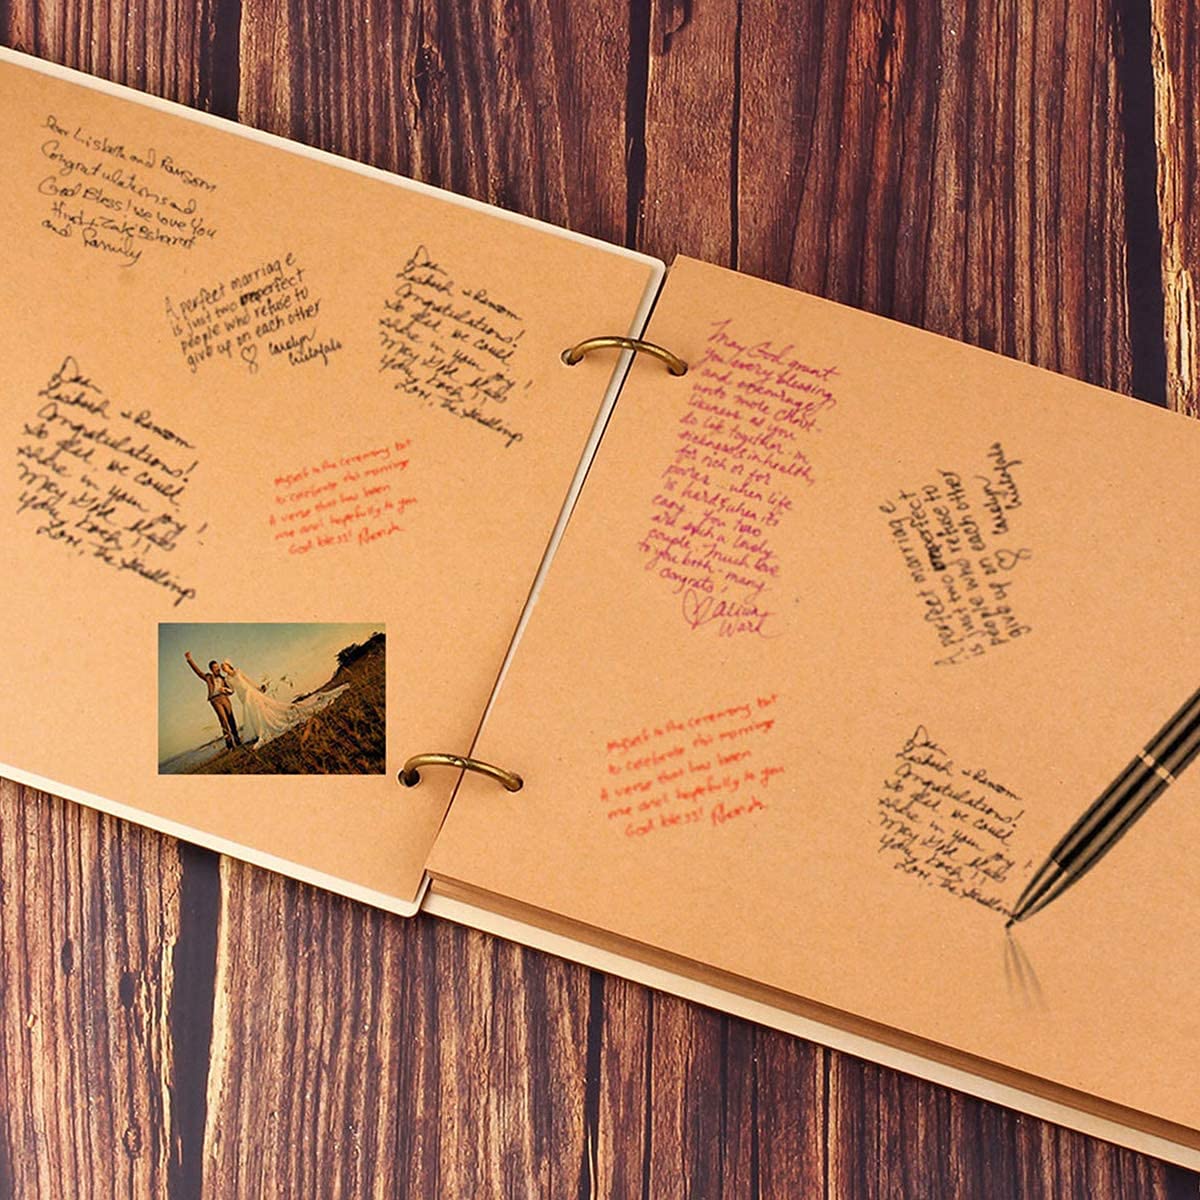 Dear Lisbeth and Ransom
Congratulations and
God Bless! we love You
Hind + Zake Bsharat
and Family
A perfect marriage
is just two imperfect
people who refuse to
give up on each other
♡ Carolyn
Dear
Lisbeth & Ransom
Congratulations!
So glad we could
share in your joy!
May God bless
you both!!
Love, The
Dear
Lisbeth & Ransom
Congratulations!
So glad we could
share in your joy!
May God bless
you both!!
Love, The
Myself to the ceremony but
to celebrate this marriage
A verse that has been
me and hopefully to you
God bless!
May God grant
you every blessing,
and encourage
unto more Christ
likeness as you
do life together - in
sickness & in health,
for rich or for
poorer - when life
is hard & when it's
easy. You two
are such a lovely
couple. Much love
to you both - many
congrats!
♡ Alicia
Ward
A perfect marriage
is just two imperfect
people who refuse to
give up on each other
♡ Carolyn
Myself to the ceremony but
to celebrate this marriage
A verse that has been
me and hopefully to you
God bless!
Dear
Lisbeth & Ransom
Congratulations!
So glad we could
share in your joy!
May God bless
you both!!
Love, The